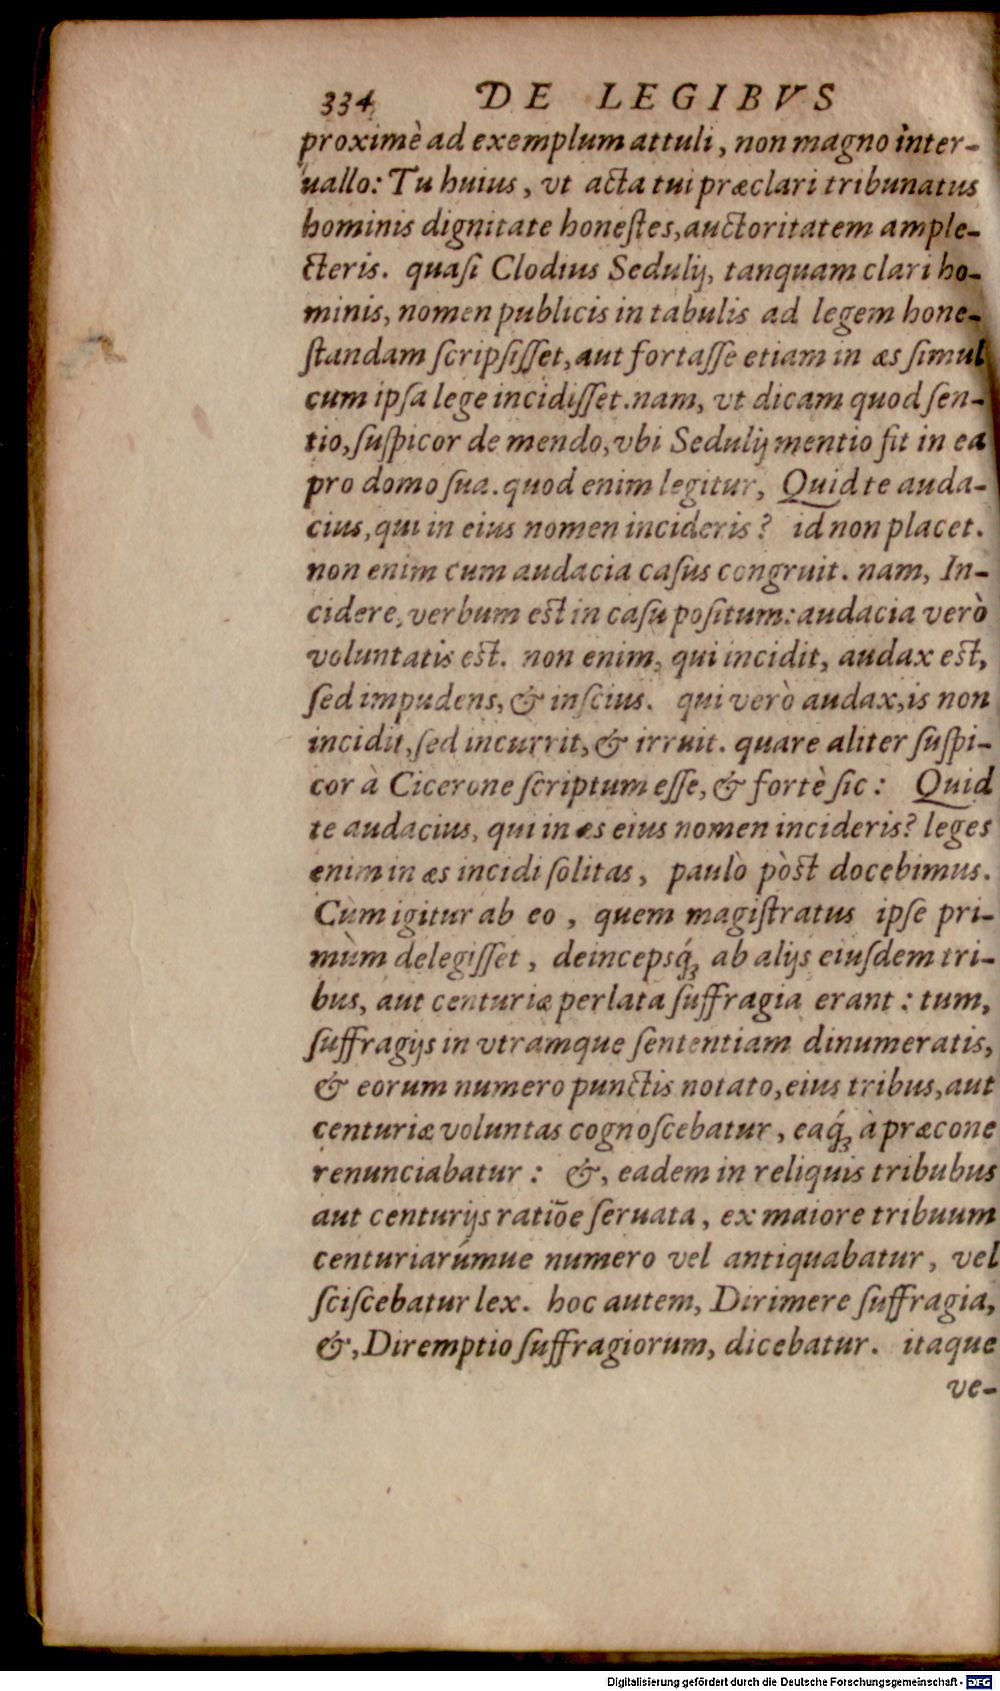 334 DE LEGIBVS
proximè ad exemplum attuli, non magno inter-
uallo: Tu huius, vt acta tui præclari tribunatus
hominis dignitate honeſtes, auctoritatem ample-
cteris. quaſi Clodius Sedulij, tanquam clari ho-
minis, nomen publicis in tabulis ad legem hone-
ſtandam ſcripſiſſet, aut fortaſſe etiam in æs ſimul
cum ipſa lege incidiſſet. nam, vt dicam quod ſen-
tio, ſuſpicor de mendo, vbi Sedulij mentio fit in ea
pro domo ſua. quod enim legitur, Quid te auda-
cius, qui in eius nomen incideris? id non placet.
non enim cum audacia caſus congruit. nam, In-
cidere, verbum est in caſu poſitum: audacia verò
voluntatis est. non enim, qui incidit, audax est,
ſed impudens, & inſcius. qui verò audax, is non
incidit, ſed incurrit, & irruit. quare aliter ſuſpi-
cor à Cicerone ſcriptum eſſe, & fortè ſic: Quid
te audacius, qui in æs eius nomen incideris? leges
enim in æs incidi ſolitas, paulò pòst docebimus.
Cùm igitur ab eo, quem magiſtratus ipſe pri-
mùm delegiſſet, deincepsq́ꝫ ab alijs eiuſdem tri-
bus, aut centuriæ perlata ſuffragia erant: tum,
ſuffragijs in vtramque ſententiam dinumeratis,
& eorum numero punctis notato, eius tribus, aut
centuriæ voluntas cognoſcebatur, eaq́ꝫ à præcone
renunciabatur: &, eadem in reliquis tribubus
aut centurijs ratiōe ſeruata, ex maiore tribuum
centuriarúmue numero vel antiquabatur, vel
ſciſcebatur lex. hoc autem, Dirimere ſuffragia,
&, Diremptio ſuffragiorum, dicebatur. itaque
ve-
Digitalisierung gefördert durch die Deutsche Forschungsgemeinschaft - DFG